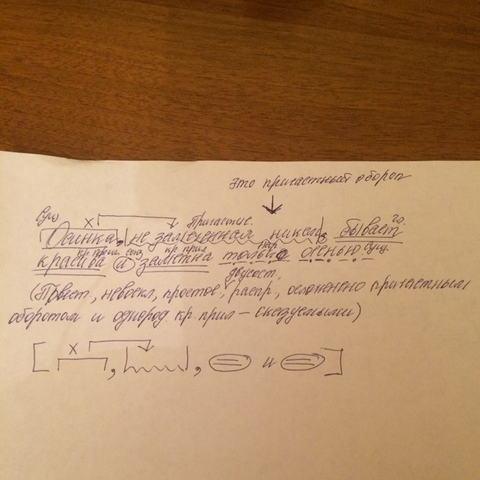 это причастный оборот
Сущ Причастие
Осинка, не замеченная никем, бывает гл.
кр прил. союз кр прил нар. сущ.
красива и заметна только осенью
двусост.
(Повест, невоскл, простое, распр, осложнено причастным
оборотом и однород кр прил – сказуемыми)
[ x , , и ]